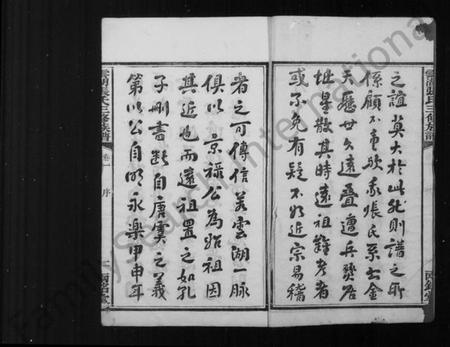 之誼莫大於此然則譜之所
係顧不重歟我張氏系出金
天歷世久遠疊遭兵燹居
址星散其時遠祖難考者
或不免有疑不如近宗易稽
雲湖張氏三修族譜
卷一 序
兩銘堂
者之可傳信若雲湖一脈
俱以京祿公為始祖因
其近也而遠祖置之如孔
子刪書斷自唐虞之義
第以公自明永樂甲申年
FamilySearch International